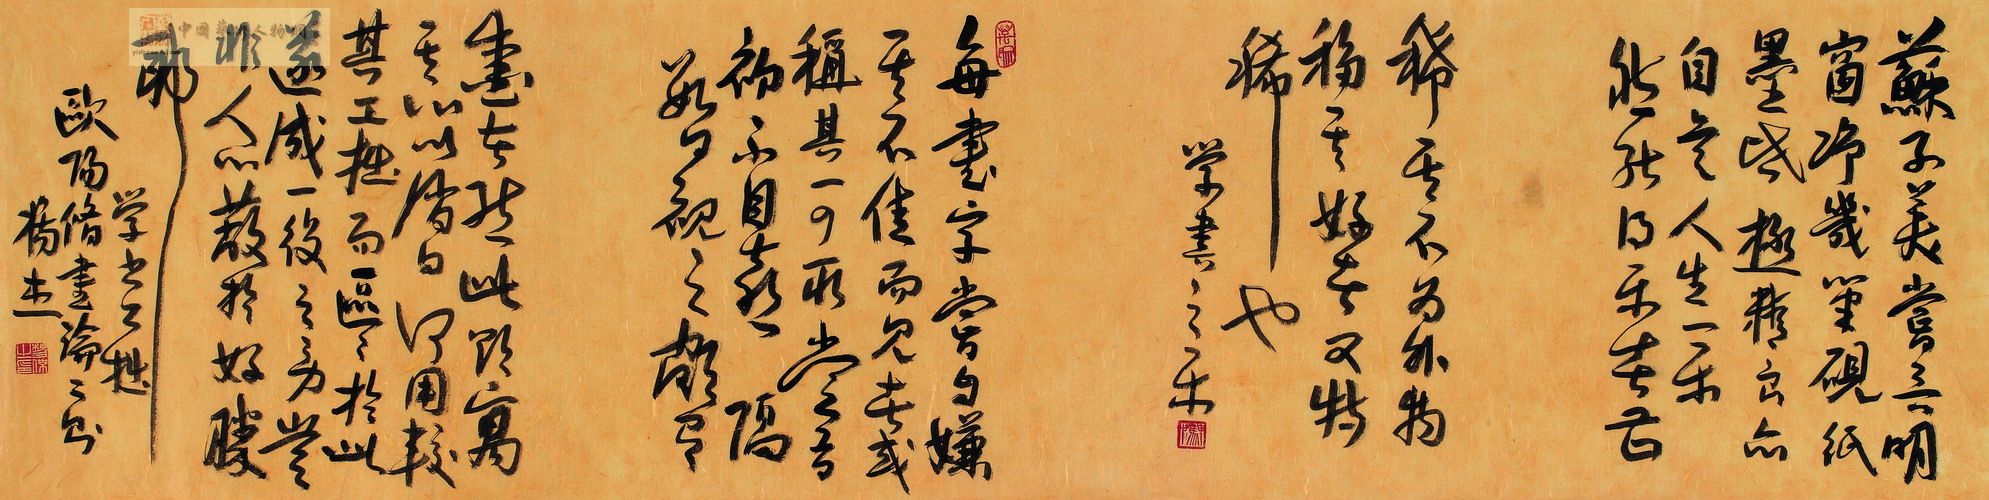 蘇子美嘗言明
窗净幾筆硯紙
墨皆極精良亦
自是人生一樂
然能得樂者甚
稀其不為外物
移其好者又特
稀也
学書之樂
每書字嘗自嫌
其不佳而見者或
稱其可取嘗有
初不自喜隔
數日視之頗
愛者然此聊寓
其心以消日何用較
其工拙而區區於此
遂成一役之勞豈
非人心蔽於好勝
邪
学書工拙
歐陽脩書論二則